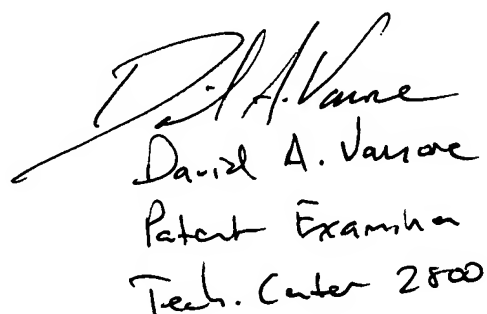 David A. Vanore
David A. Vanore
Patent Examiner
Tech. Center 2800